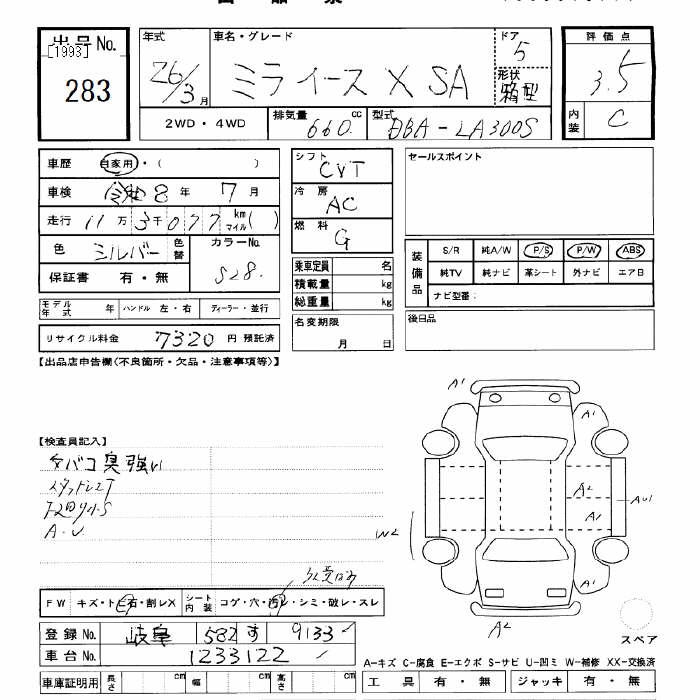 出品No.
[1993]
283
年式
26/3月
車名・グレード
ミライース X SA
ドア
5
形状
箱型
評価点
3.5
内装
C
2WD・4WD
排気量
660 cc
型式
DBA-LA300S
車歴
自家用・( )
車検
令和 8年 7月
走行
11万3千077
km
マイル( )
色
シルバー
色替
カラーNo.
S28.
保証書
有・無
モデル年式
年
ハンドル 左・右
ディーラー・並行
リサイクル料金
7320 円 預託済
シフト
CVT
冷房
AC
燃料
G
乗車定員 名
積載量 kg
総重量 kg
名変期限
月 日
セールスポイント
装備品
S/R 純A/W P/S P/W ABS
純TV 純ナビ 革シート 外ナビ エアB
ナビ型番：
後日品
【出品店申告欄(不良箇所・欠品・注意事項等)】
【検査員記入】
タバコ臭強い
A.U
W2
A1
A1
A2
A1
AU1
A1
A2
FW
キズ・トビ石・割レX
シート内装
コゲ・穴・汚レ・シミ・破レ・スレ
登録No.
岐阜 582 す 9133
車台No.
1233122
スペア
A-キズ C-腐食 E-エクボ S-サビ U-凹ミ W-補修 XX-交換済
車庫証明用
長さ cm
幅 cm
高さ cm
工具 有・無
ジャッキ 有・無